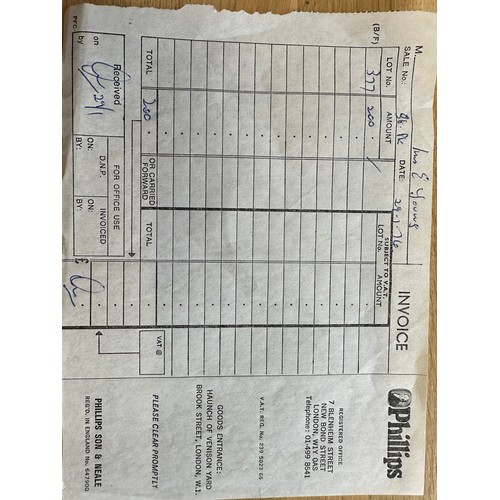 INVOICE
Phillips
M Mrs E Young
SALE No: DATE: 29-1-76
REGISTERED OFFICE:
7 BLENHEIM STREET
NEW BOND STREET
LONDON, W1Y 0AS
Telephone: 01-499 8541
V.A.T. REG. No: 239 5023 66
GOODS ENTRANCE:
HAUNCH OF VENISON YARD
BROOK STREET, LONDON, W.1.
PLEASE CLEAR PROMPTLY
PHILLIPS SON & NEALE
REG'D. IN ENGLAND No. 647900
SUBJECT TO V.A.T.
LOT No. AMOUNT LOT No. AMOUNT
(B/F)
377 200
TOTAL 200 OR CARRIED FORWARD TOTAL
VAT @
£
Received
on 29/1
by
FOR OFFICE USE
D.N.P. INVOICED
ON: ON:
BY: BY:
PFC